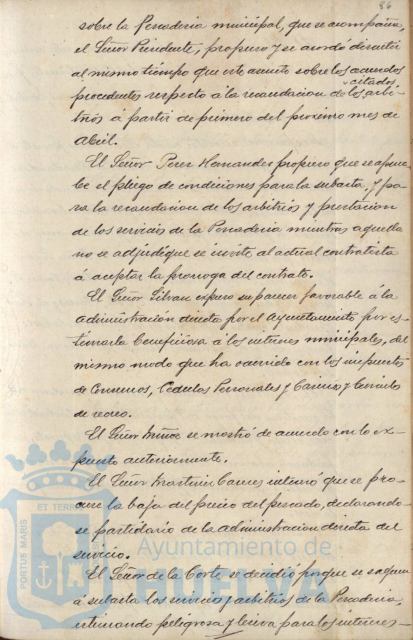 86
sobre la Pescaderia municipal, que se acompaña,
el Señor Presidente, propuso y se acordó discutir
al mismo tiempo que este asunto sobre los acuerdos
procedentes respecto á la recaudacion de los citados arbi-
trios á partir de primero del proximo mes de
Abril.
El Señor Perez Hernandez propuso que se aprue-
be el pliego de condiciones para la subasta, y pa-
ra la recaudacion de los arbitrios y prestacion
de los servicios de la Pescaderia mientras aquella
no se adjudique se invite al actual contratista
á aceptar la prorroga del contrato.
El Señor expuso su parecer favorable á la
administración directa por el Ayuntamiento por es-
timarla beneficiosa á los intereses municipales, del
mismo modo que ha ocurrido con los impuestos
de Consumos, Cedulas Personales y Casinos y Circulos
de recreo.
El Señor Muñoz se mostró de acuerdo con lo ex-
puesto anteriormente.
El Señor Martin interesó que se pro-
cure la baja del precio del pescado, declarando-
se partidario de la administracion directa del
servicio.
El Señor de la Corte se decidió porque se saquen
á subasta los servicios y arbitrios de la Pescaderia,
estimando peligrosa y lesiva para los intereses
PORTUS MARIS
ET TERRÆ
Ayuntamiento de
HUELVA